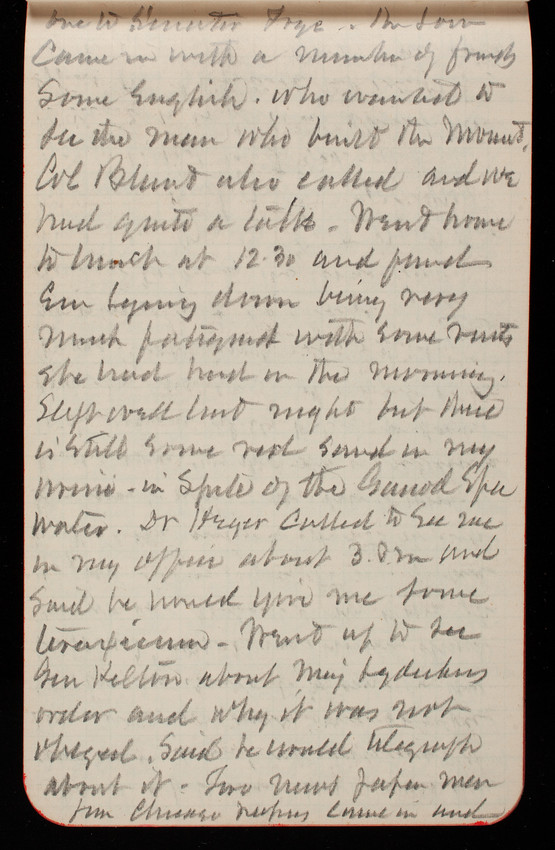 one to Senator Frye.
Came in with a number of friends
Some English. who wanted to
see the man who built the Monmt,
Col Blunt also called and we
had quite a talk - Went home
to lunch at 12.30 and found
Em lying down being very
much fatigued with some visits
she had had in the morning.
Slept well last night but there
is still some red sand in my
urine - in spite of the Spa
water. Dr Heger called to see me
in my office about 3. Pm and
said he would give me some
- Went up to see
Gen Kelton about Maj
order and why it was not
obeyed. Said he would telegraph
about it - Two news paper men
from Chicago came in and